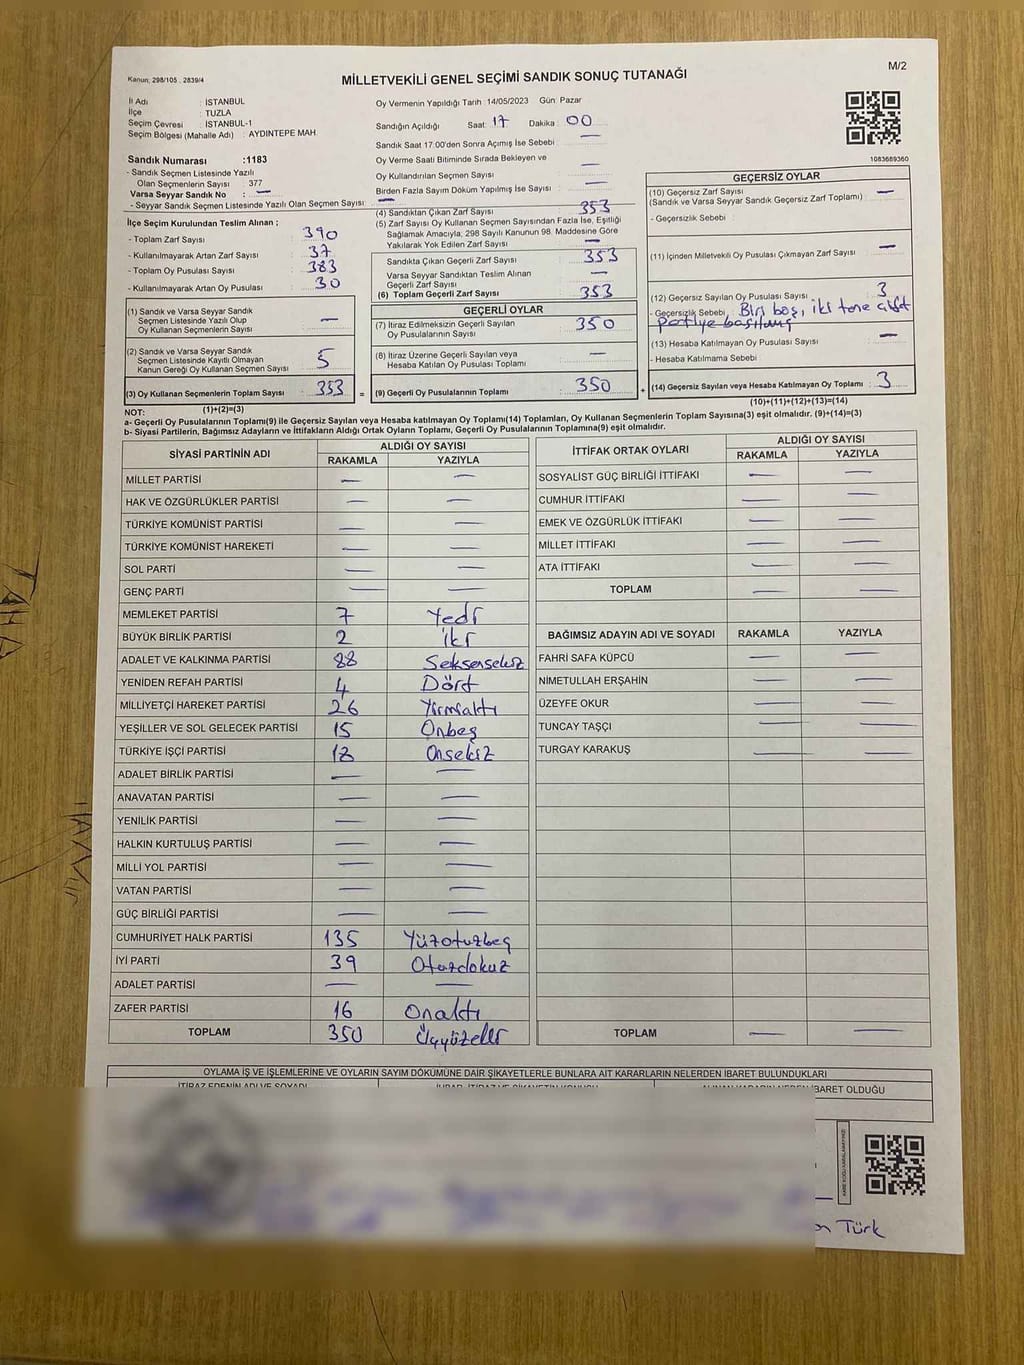 Kanun: 298/105 , 2839/4
MİLLETVEKİLİ GENEL SEÇİMİ SANDIK SONUÇ TUTANAĞI
M/2
İl Adı : İSTANBUL
İlçe : TUZLA
Seçim Çevresi : İSTANBUL-1
Seçim Bölgesi (Mahalle Adı) : AYDINTEPE MAH.
Sandık Numarası :1183
- Sandık Seçmen Listesinde Yazılı
Olan Seçmenlerin Sayısı : 377
Varsa Seyyar Sandık No : —
- Seyyar Sandık Seçmen Listesinde Yazılı Olan Seçmen Sayısı: —
Oy Vermenin Yapıldığı Tarih :14/05/2023 Gün: Pazar
Sandığın Açıldığı Saat: 17 Dakika : 00
Sandık Saat 17:00'den Sonra Açımış İse Sebebi : —
Oy Verme Saati Bitiminde Sırada Bekleyen ve
Oy Kullandırılan Seçmen Sayısı : —
Birden Fazla Sayım Döküm Yapılmış İse Sayısı : —
1083689360
İlçe Seçim Kurulundan Teslim Alınan ;
- Toplam Zarf Sayısı : 390
- Kullanılmayarak Artan Zarf Sayısı : 37
- Toplam Oy Pusulası Sayısı : 383
- Kullanılmayarak Artan Oy Pusulası : 30
(1) Sandık ve Varsa Seyyar Sandık
Seçmen Listesinde Yazılı Olup
Oy Kullanan Seçmenlerin Sayısı : —
(2) Sandık ve Varsa Seyyar Sandık
Seçmen Listesinde Kayıtlı Olmayan
Kanun Gereği Oy Kullanan Seçmen Sayısı : 5
(3) Oy Kullanan Seçmenlerin Toplam Sayısı : 353
(1)+(2)=(3)
(4) Sandıktan Çıkan Zarf Sayısı : 353
(5) Zarf Sayısı Oy Kullanan Seçmen Sayısından Fazla İse, Eşitliği
Sağlamak Amacıyla, 298 Sayılı Kanunun 98. Maddesine Göre
Yakılarak Yok Edilen Zarf Sayısı : —
Sandıkta Çıkan Geçerli Zarf Sayısı : 353
Varsa Seyyar Sandıktan Teslim Alınan
Geçerli Zarf Sayısı : —
(6) Toplam Geçerli Zarf Sayısı : 353
GEÇERLİ OYLAR
(7) İtiraz Edilmeksizin Geçerli Sayılan
Oy Pusulası Toplamı : 350
(8) İtiraz Üzerine Geçerli Sayılan veya
Hesaba Katılan Oy Pusulası Toplamı : —
= (9) Geçerli Oy Pusulalarının Toplamı : 350
GEÇERSİZ OYLAR
(10) Geçersiz Zarf Sayısı : —
(Sandık ve Varsa Seyyar Sandık Geçersiz Zarf Toplamı)
- Geçersizlik Sebebi :
(11) İçinden Milletvekili Oy Pusulası Çıkmayan Zarf Sayısı : —
(12) Geçersiz Sayılan Oy Pusulası Sayısı : 3
- Geçersizlik Sebebi : Biri boş, iki tane çift
partiye basılmış
(13) Hesaba Katılmayan Oy Pusulası Sayısı : —
- Hesaba Katılmama Sebebi :
+ (14) Geçersiz Sayılan veya Hesaba Katılmayan Oy Toplamı : 3
(10)+(11)+(12)+(13)=(14)
NOT:
a- Geçerli Oy Pusulalarının Toplamı(9) ile Geçersiz Sayılan veya Hesaba katılmayan Oy Toplamı(14) Toplamları, Oy Kullanan Seçmenlerin Toplam Sayısına(3) eşit olmalıdır. (9)+(14)=(3)
b- Siyasi Partilerin, Bağımsız Adayların ve İttifakların Aldığı Ortak Oyların Toplamı, Geçerli Oy Pusulalarının Toplamına(9) eşit olmalıdır.
SİYASİ PARTİNİN ADI ALDIĞI OY SAYISI
RAKAMLA YAZIYLA
MİLLET PARTİSİ — —
HAK VE ÖZGÜRLÜKLER PARTİSİ — —
TÜRKİYE KOMÜNİST PARTİSİ — —
TÜRKİYE KOMÜNİST HAREKETİ — —
SOL PARTİ — —
GENÇ PARTİ — —
MEMLEKET PARTİSİ 7 Yedi
BÜYÜK BİRLİK PARTİSİ 2 İki
ADALET VE KALKINMA PARTİSİ 88 Seksensekiz
YENİDEN REFAH PARTİSİ 4 Dört
MİLLİYETÇİ HAREKET PARTİSİ 26 Yirmialtı
YEŞİLLER VE SOL GELECEK PARTİSİ 15 Onbeş
TÜRKİYE İŞÇİ PARTİSİ 18 Onsekiz
ADALET BİRLİK PARTİSİ — —
ANAVATAN PARTİSİ — —
YENİLİK PARTİSİ — —
HALKIN KURTULUŞ PARTİSİ — —
MİLLİ YOL PARTİSİ — —
VATAN PARTİSİ — —
GÜÇ BİRLİĞİ PARTİSİ — —
CUMHURİYET HALK PARTİSİ 135 Yüzotuzbeş
İYİ PARTİ 39 Otuzdokuz
ADALET PARTİSİ — —
ZAFER PARTİSİ 16 Onaltı
TOPLAM 350 Üçyüzelli
İTTİFAK ORTAK OYLARI ALDIĞI OY SAYISI
RAKAMLA YAZIYLA
SOSYALİST GÜÇ BİRLİĞİ İTTİFAKI — —
CUMHUR İTTİFAKI — —
EMEK VE ÖZGÜRLÜK İTTİFAKI — —
MİLLET İTTİFAKI — —
ATA İTTİFAKI — —
TOPLAM — —
BAĞIMSIZ ADAYIN ADI VE SOYADI RAKAMLA YAZIYLA
FAHRİ SAFA KÜPCÜ — —
NİMETULLAH ERŞAHİN — —
ÜZEYFE OKUR — —
TUNCAY TAŞÇI — —
TURGAY KARAKUŞ — —
TOPLAM — —
OYLAMA İŞ VE İŞLEMLERİNE VE OYLARIN SAYIM DÖKÜMÜNE DAİR ŞİKAYETLERLE BUNLARA AİT KARARLARIN NELERDEN İBARET BULUNDUKLARI
İTİRAZ EDENİN ADI VE SOYADI
İBARET OLDUĞU
Türk